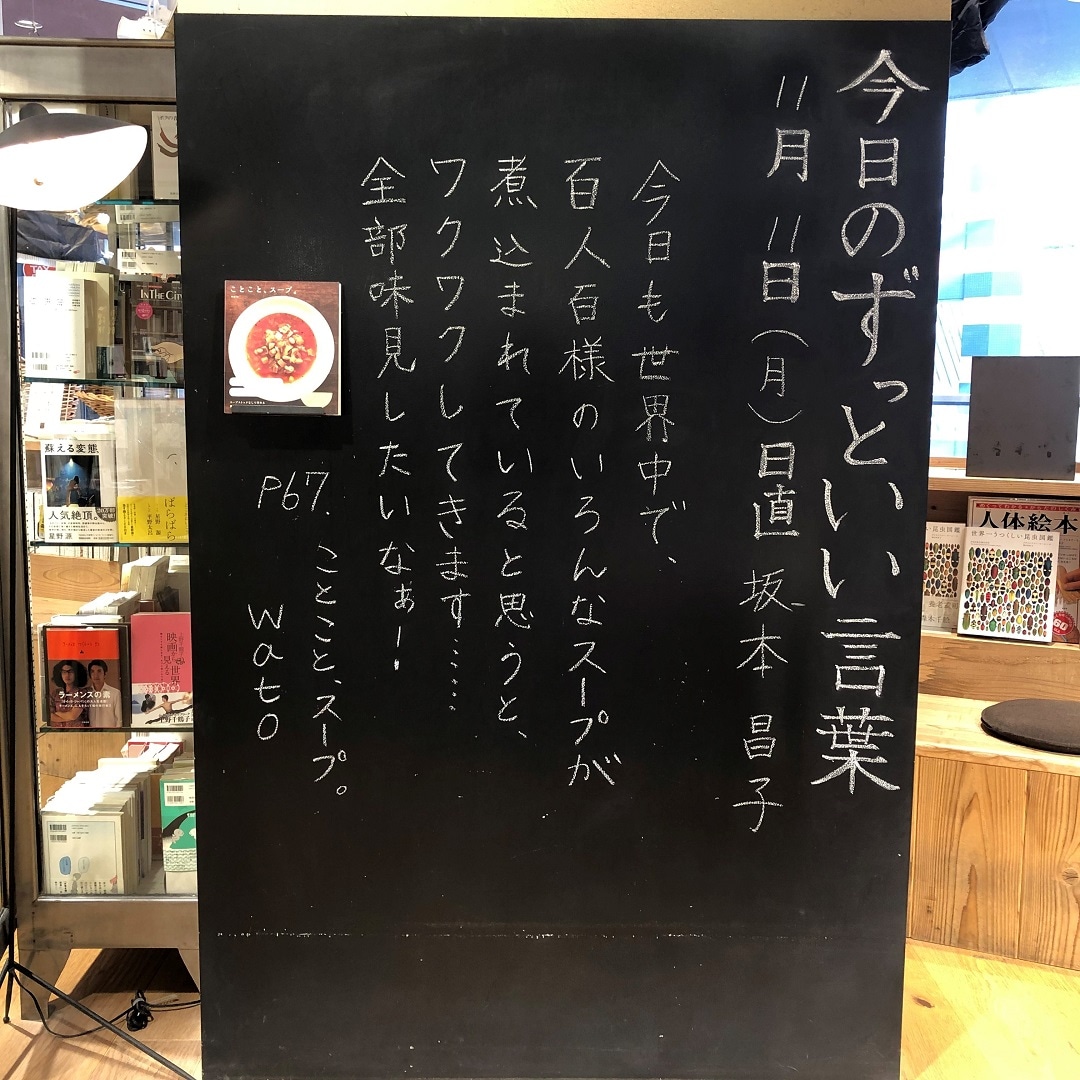 今日のずっといい言葉
11月11日(月)日直 坂本 昌子
今日も世界中で、
百人百様のいろんなスープが
煮込まれていると思うと、
ワクワクしてきます……
全部味見したいなぁー!
P67.
ことこと、スープ。
wato
ことこと、スープ。
IN THE CITY
蘇える変態
人気絶頂。
星野 源
ばらばら
ラーメンズの素
人体絵本
世界一うつくしい昆虫図鑑